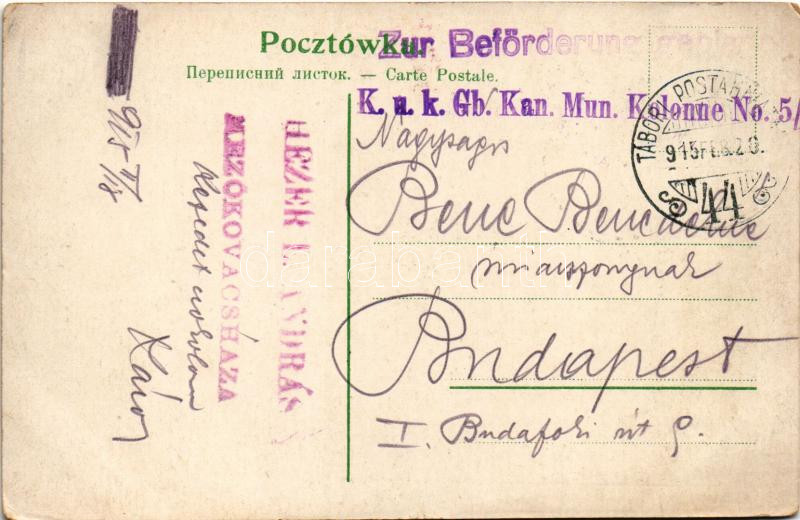 Pocztówka.
Zur Beförderung geeignet
Переписний листок. — Carte Postale.
K. u. k. Gb. Kan. Mun. Kolonne No. 5/
TÁBORI POSTAHIVATAL
915 FEB. 26.
44
Nagyságos
Bene
úrnak
Budapest
I. Budafoki út 9.
915 II/18
HEZER L. ANDRÁS
MEZŐKOVÁCSHÁZA
Kezedet csókolom
Károly
darabanth